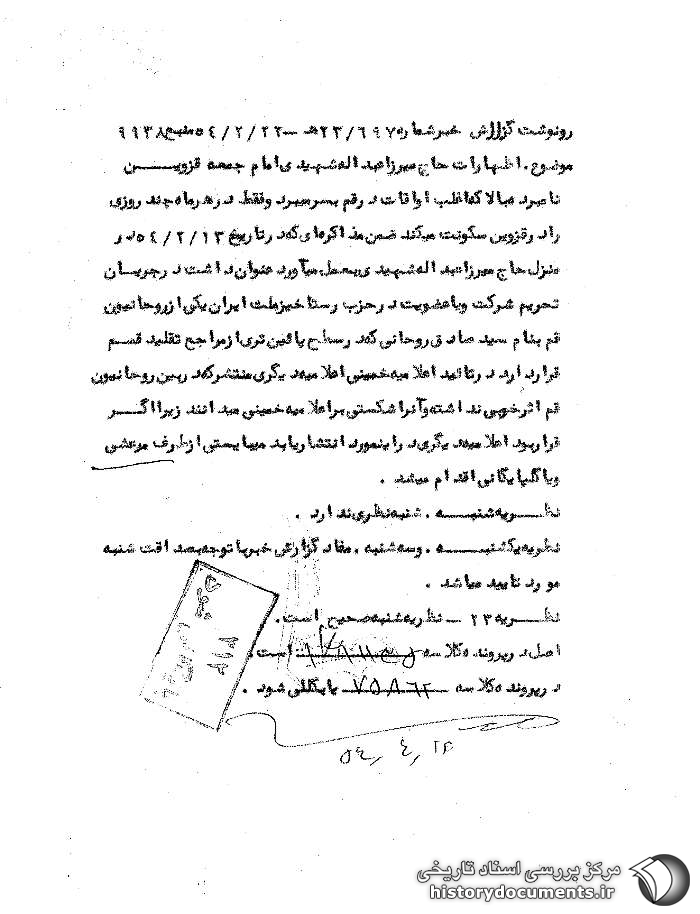 رونوشت گزارش خبر شماره ۲۳/۶۹۷ ه‍ـ ۵۴/۲/۲۲ منبع ۹۹۳۸
موضوع. اظهارات حاج میرزا عبداله شهیدی امام جمعه قزویـــن
نامبرده بالا که اغلب اوقات در قم بسر میبرد و فقط در هر ماه چند روزی
را در قزوین سکونت میکند ضمن مذاکره‌ای که در تاریخ ۵۴/۲/۱۳ در
منزل حاج میرزا عبداله شهیدی بعمل میآورد عنوان داشت در جریــان
تحریم شرکت و یا عضویت در حزب رستاخیز ملت ایران یکی از روحانیون
قم بنام سید صادق روحانی که در سطح پائین تری از مراجع تقلید قســم
قرار دارد در تائید اعلامیه خمینی اعلامیه دیگری منتشر که در بین روحانیون
قم اثر خوبی نداشته و آنرا شکستی بر اعلامیه خمینی میدانند زیرا اگــر
قرار بود اعلامیه دیگری در اینمورد انتشار یابد میبایستی از طرف مرعشی
و یا گلپایگانی اقدام میشد .
نظـــریه شنبـــه . شنبه نظری ندارد .
نظریه یکشنبـــه . و سه شنبه . مفاد گزارش خبر با توجه بصداقت شنبه
مورد تایید میباشد .
نظـــریه ۲۳ ـ نظریه شنبه صحیح است .
اصل در پرونده کلاسه است.
در پرونده کلاسه ۷۵۸۶۲ بایگانی شود .
۵۴/۴/۲۳
مرکز بررسی اسناد تاریخی
historydocuments.ir